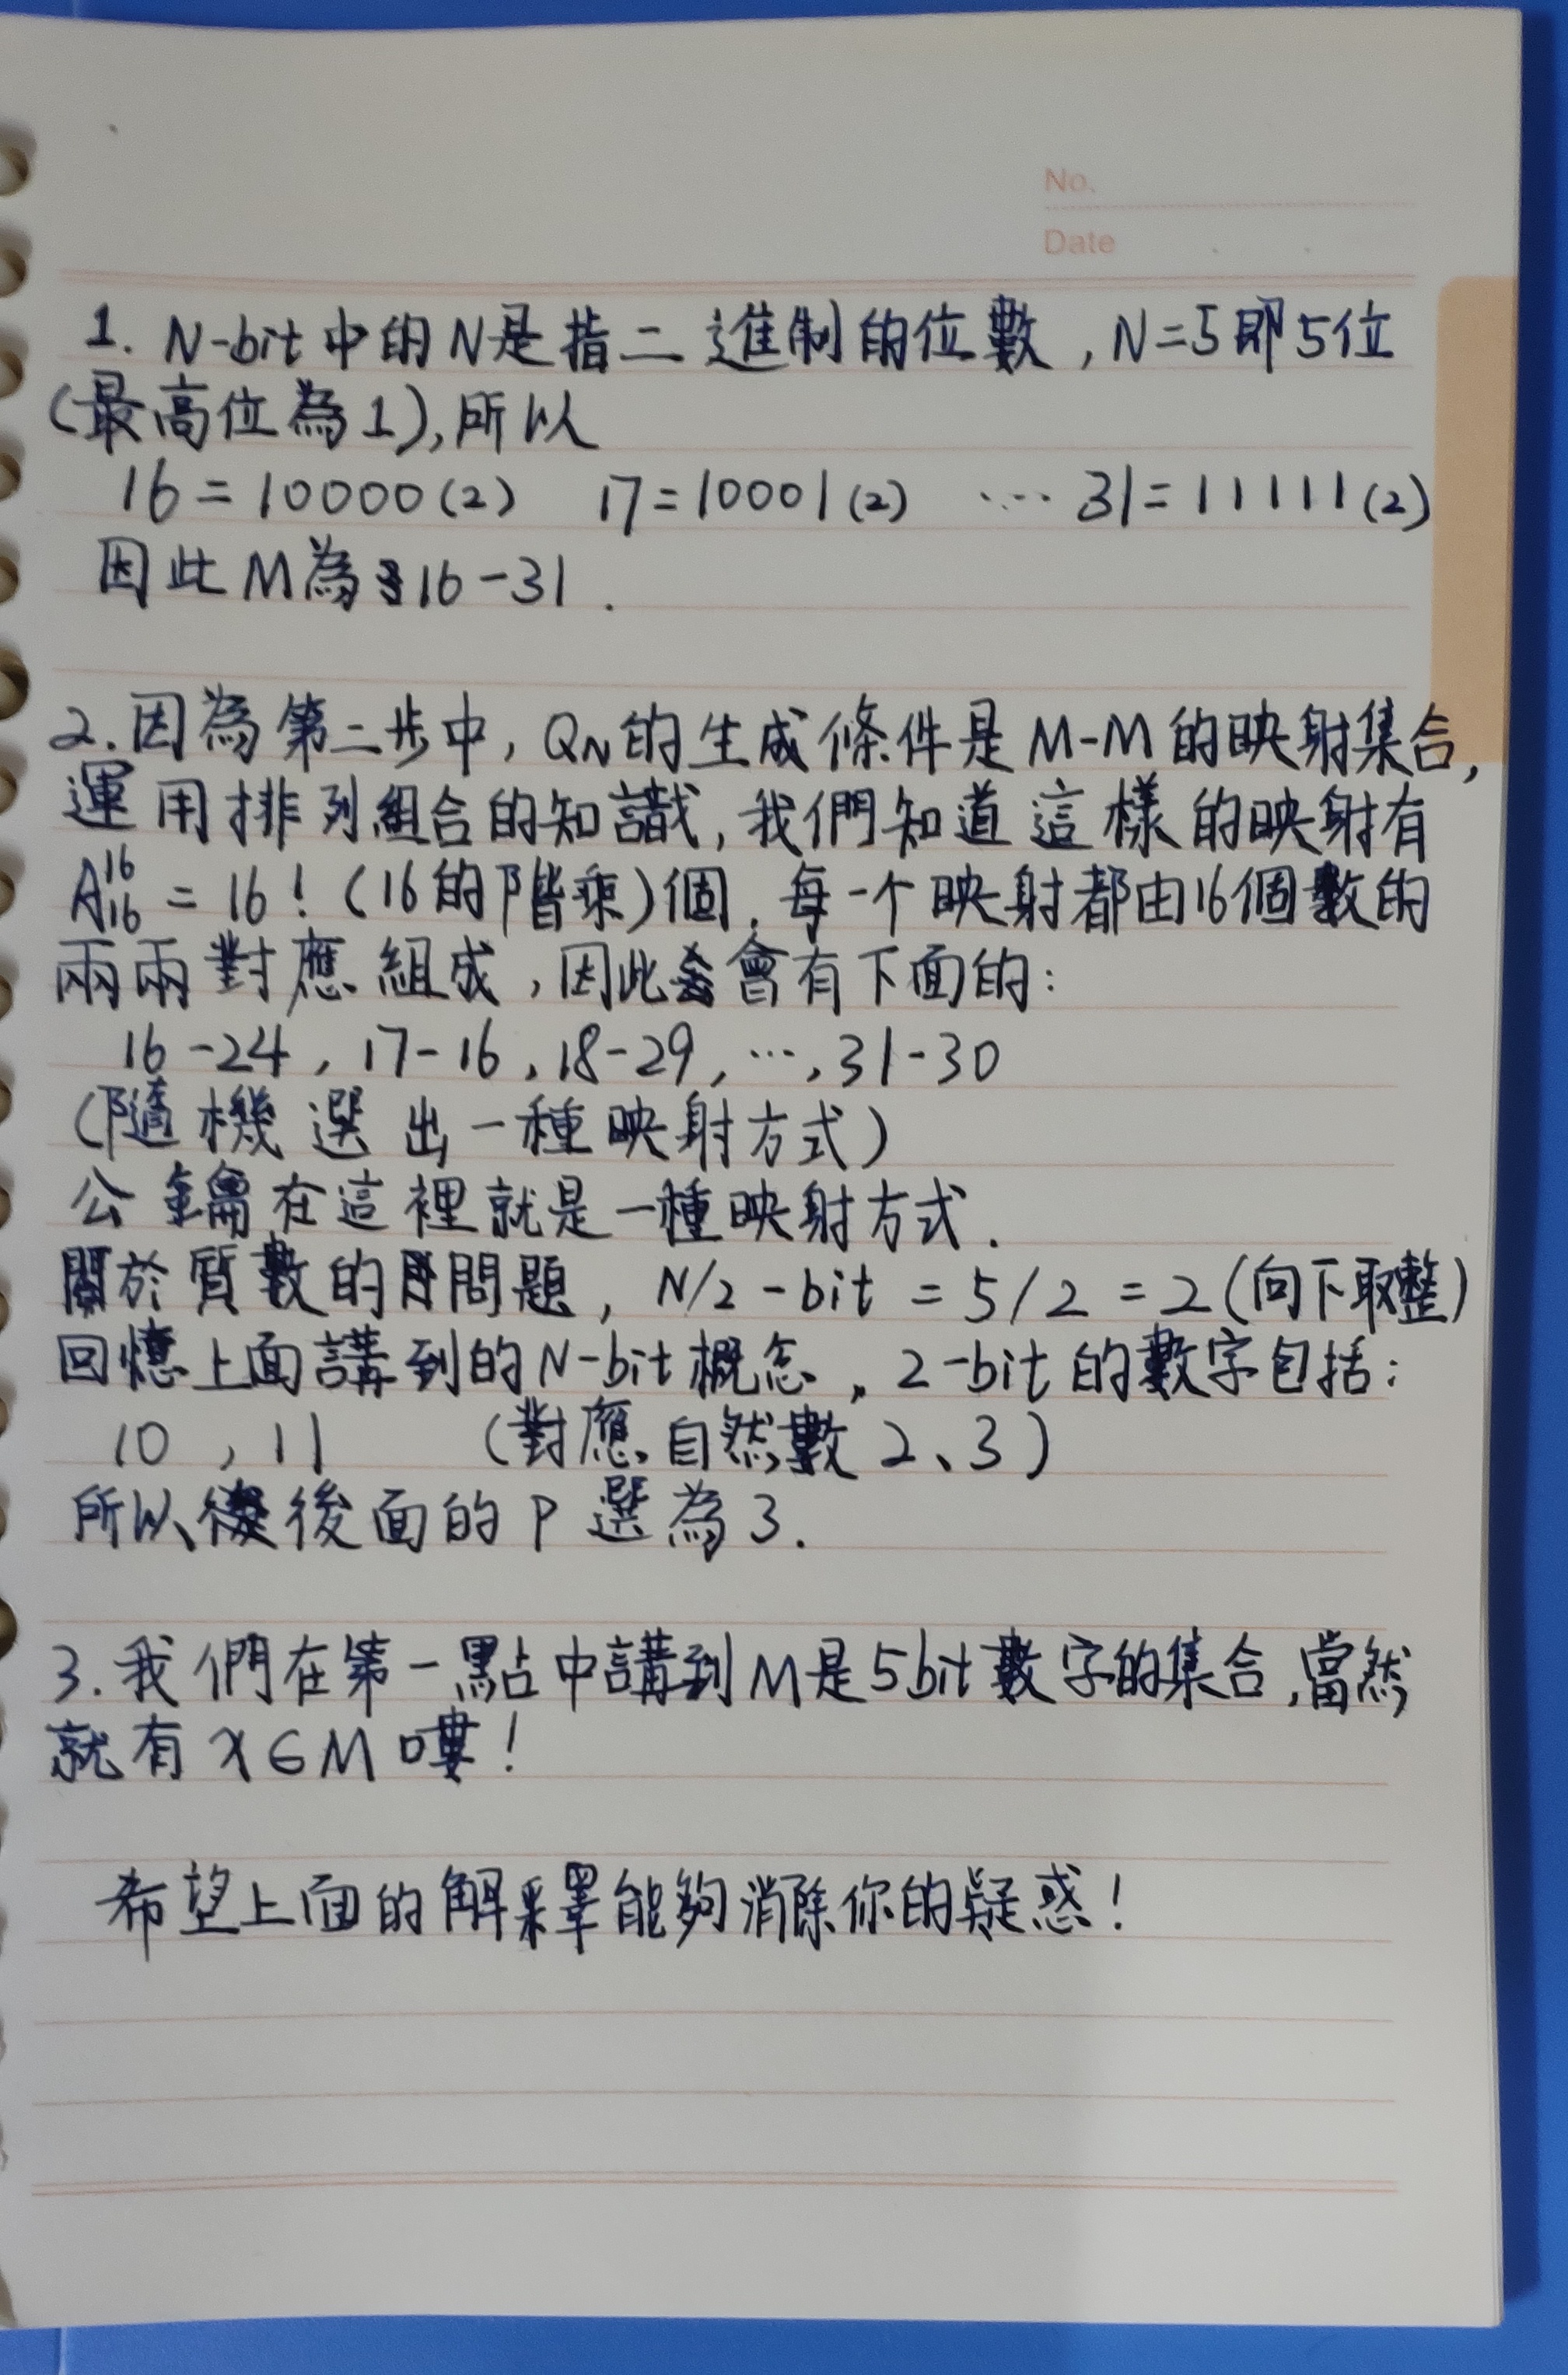 No.
Date
1. N-bit中的N是指二進制的位數,N=5即5位
(最高位為1),所以
16=10000(2) 17=10001(2) … 31=11111(2)
因此M為16-31.
2.因為第二步中,QN的生成條件是M-M的映射集合,
運用排列組合的知識,我們知道這樣的映射有
A¹⁶₁₆=16!(16的階乘)個.每一个映射都由16個數的
兩兩對應組成,因此會有下面的:
16-24,17-16,18-29,…,31-30
(隨機選出一種映射方式)
公鑰在這裡就是一種映射方式.
關於質數的問題,N/2-bit=5/2=2(向下取整)
回憶上面講到的N-bit概念,2-bit的數字包括:
10,11 (對應自然數2、3)
所以後面的P選為3.
3.我們在第一點中講到M是5bit數字的集合,當然
就有x∈M嘍!
希望上面的解釋能夠消除你的疑惑!